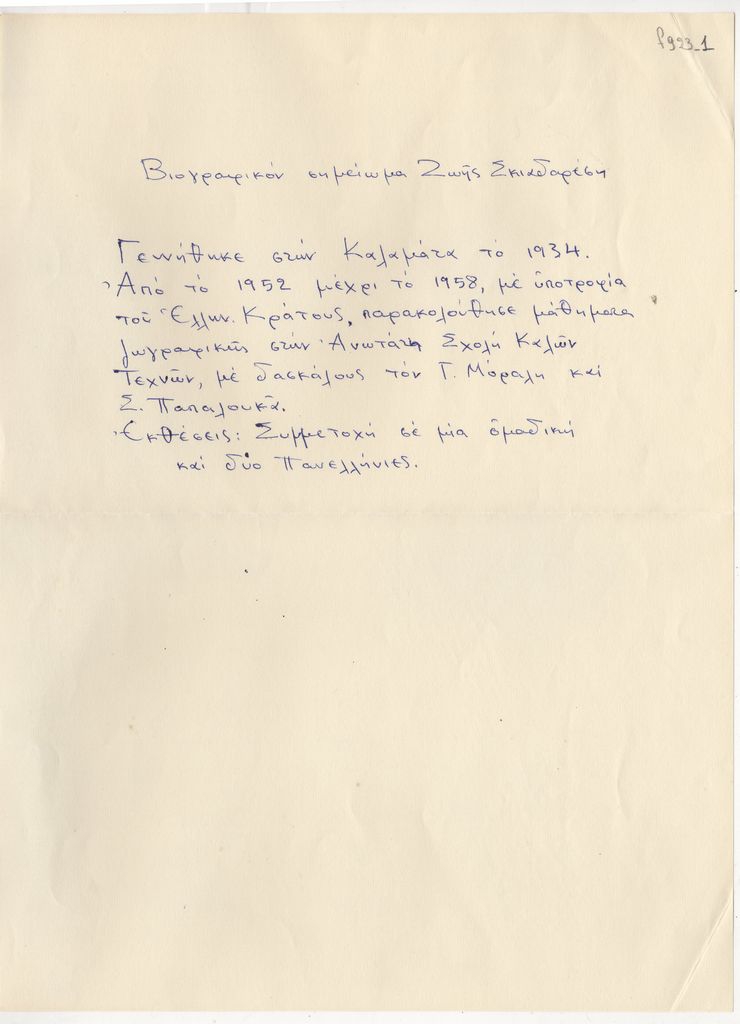 f923_1
Βιογραφικόν σημείωμα Ζωῆς Σκιαδαρέση
Γεννήθηκε στήν Καλαμάτα τό 1934.
Ἀπό τό 1952 μέχρι τό 1958, μέ ὑποτροφία
τοῦ Ἑλλην. Κράτους, παρακολούθησε μάθηματα
ζωγραφικῆς στήν Ἀνωτάτη Σχολή Καλῶν
Τεχνῶν, μέ δασκάλους τόν Γ. Μόραλη καί
Σ. Παπαλουκᾶ.
Ἐκθέσεις: Συμμετοχή σέ μία ὁμαδική
καί δύο Πανελλήνιες.